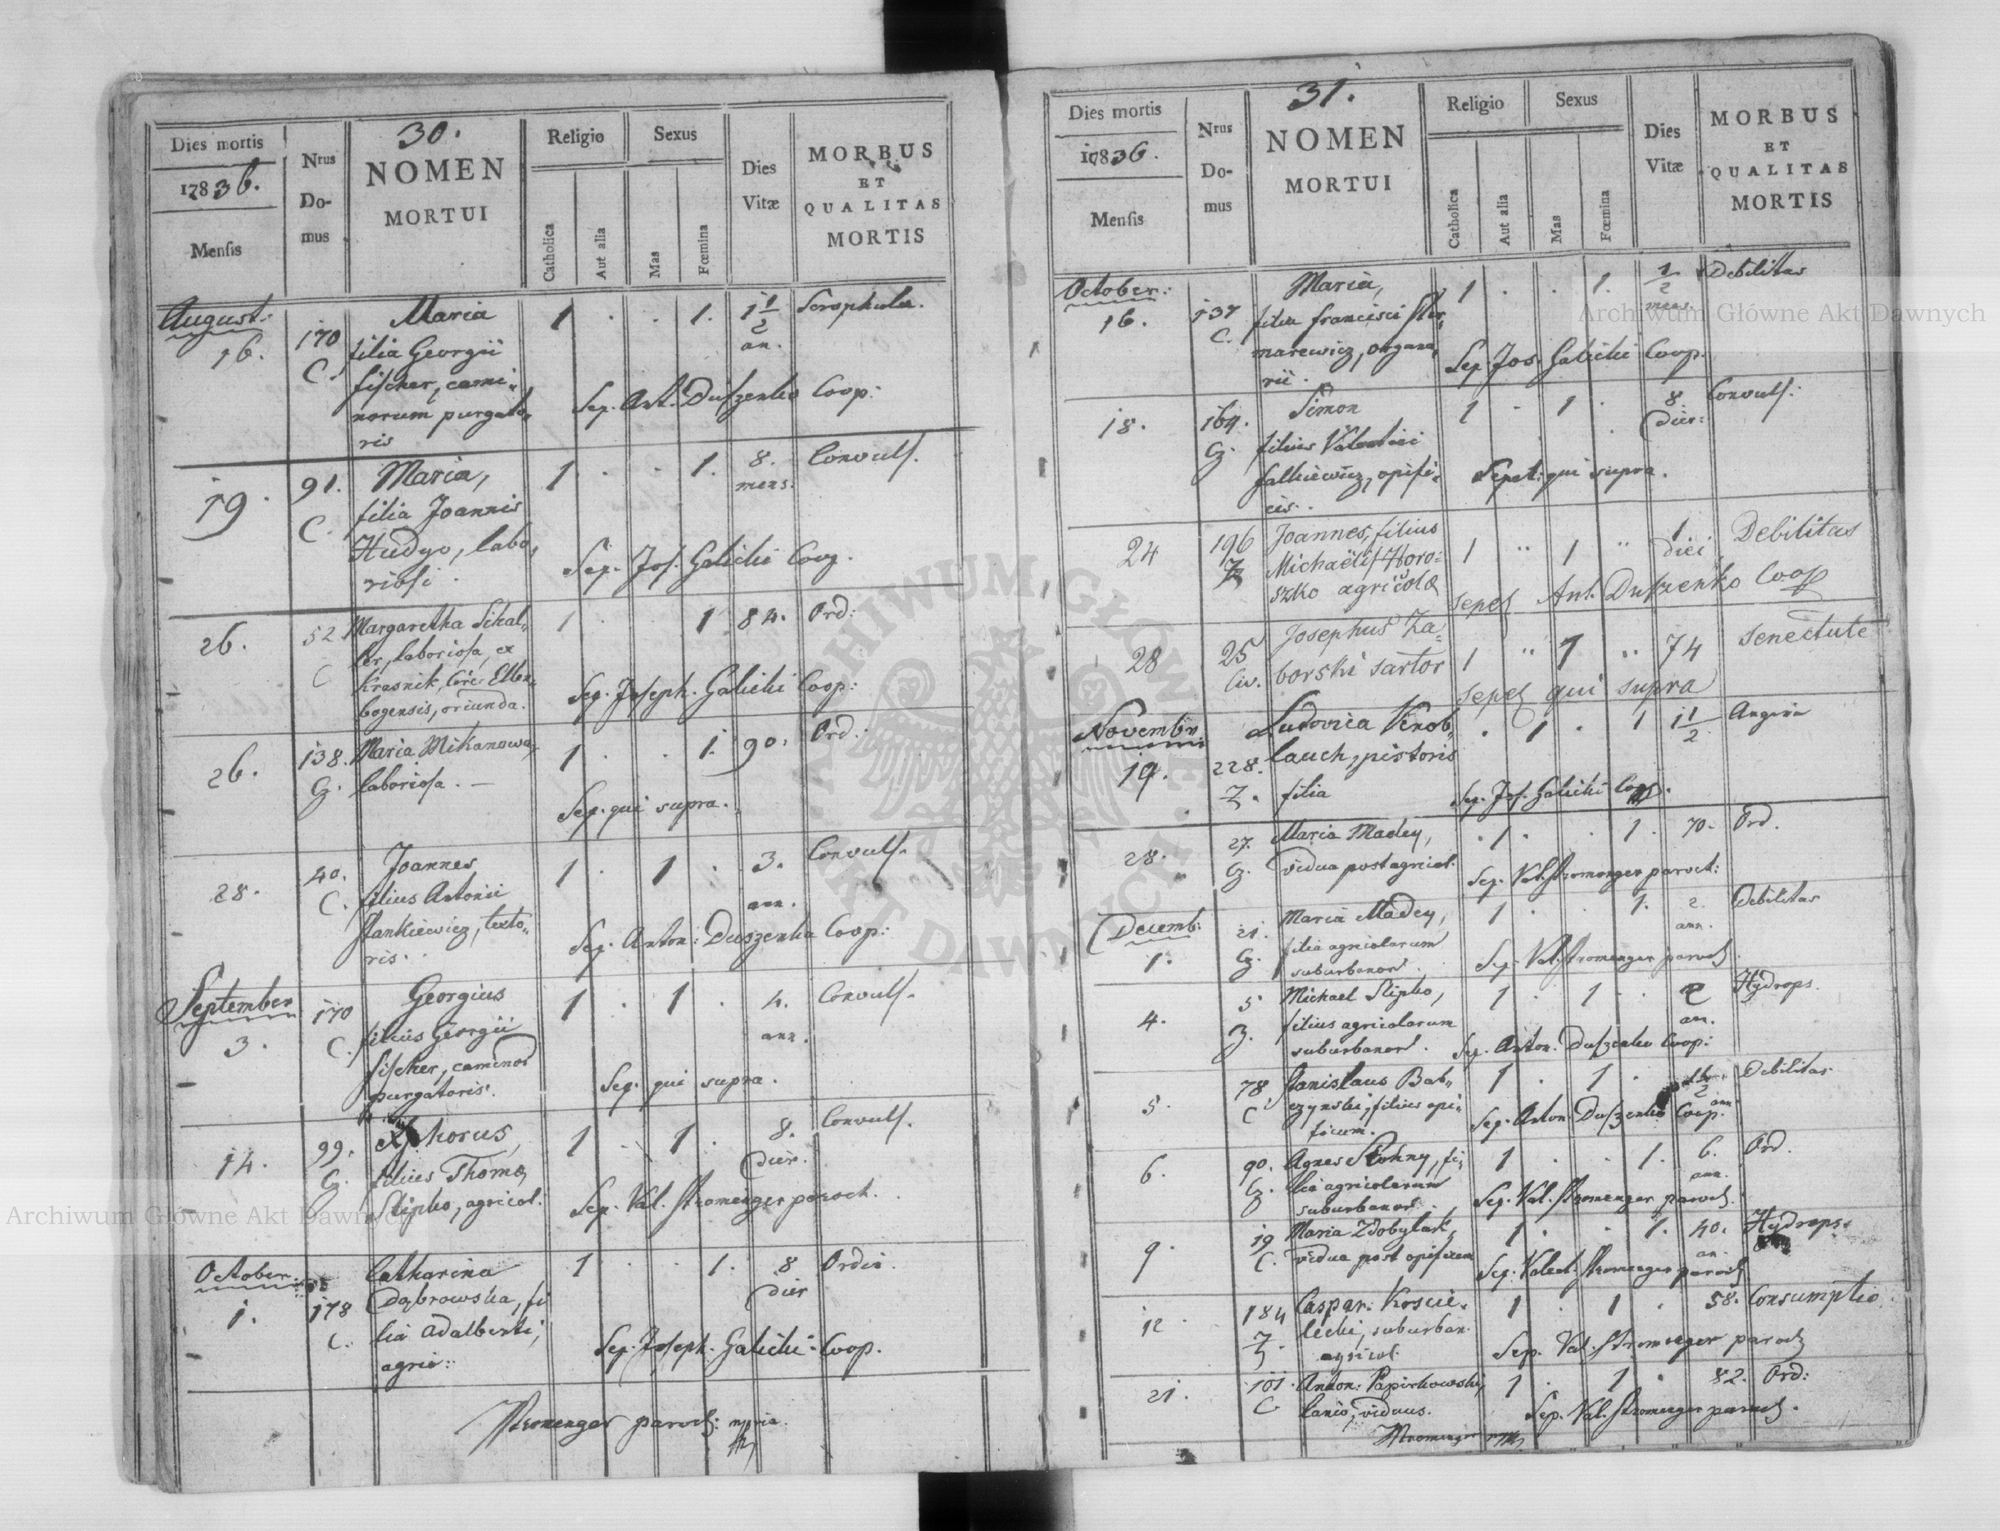 30.
Dies mortis
1783 6.
Mensis
Nrus
Do-
mus
NOMEN
MORTUI
Religio
Catholica
Aut alia
Sexus
Mas
Fœmina
Dies
Vitæ
MORBUS
ET
QUALITAS
MORTIS
August:
16.
170
C.
Maria
filia Georgii
Fischer, cami-
norum purgato-
ris
1 . . 1.
1 1/2
an.
Scrophulae.
Sep. Ant. Duszenko Coop:
19.
91.
C.
Maria,
filia Joannis
Hudyo, labo-
riosi.
1 . . 1.
8.
mens.
Convuls.
Sep. Jos. Galicki Coop.
26.
52
C
Margaretha Schal-
ler, laboriosa, ex
Krasnik, Circ. Ellen-
bogensis, oriunda.
1 . . 1
84.
Ord:
Sep. Joseph. Galicki Coop:
26.
138.
G.
Maria Mikanowa,
laboriosa. —
1 . . 1.
90.
Ord.
Sep. qui supra.
28.
40.
C.
Joannes,
filius Antonii
Stankiewicz, texto-
ris.
1 . 1 .
3.
ann.
Convuls.
Sep. Anton: Duszenko Coop:
September
3.
170
C.
Georgius
filius Georgii
Fischer, caminor
purgatoris.
1 . 1 .
4.
ann.
Convuls.
Sep. qui supra.
14.
99.
G.
filius Thomæ
Slipko, agricol:
1 . 1 .
8.
dier.
Convuls.
Sep. Val. Stromenger paroch.
October.
1.
178
C.
Catharina
Dąbrowska, fi
lia Adalberti,
agric::
1 . . 1.
8
dier
Ordin.
Sep. Joseph. Galicki Coop.
Stromenger paroch: mpria.
31.
Dies mortis
1783 6.
Mensis
Nrus
Do-
mus
NOMEN
MORTUI
Religio
Catholica
Aut alia
Sexus
Mas
Fœmina
Dies
Vitæ
MORBUS
ET
QUALITAS
MORTIS
October:
16.
137
C.
Maria,
filia Francisci
marewicz, organa-
rii.
1 . . 1.
1/2
mens.
Debilitas
Sep. Jos. Galicki Coop.
18.
164.
G.
Simon
filius Valentini
Falkiewicz, opifi-
cis.
1 . 1 .
8.
dier:
Convuls:
Sepel: qui supra.
24
196
Z
Joannes, filius
Michaëlis Horo-
szko agricolæ
1 " 1 "
1
diei
Debilitas
sepel Ant. Duszenko Coop
28
25
Civ.
Josephus Za-
borski sartor
1 " 1 "
74
Senectute
sepel qui supra
Novembr:
19.
228.
Z.
Ludovica Knob,
lauch, pistoris
filia
. 1 . 1
1 1/2
Angina
Sep. Jos. Galicki Coop.
28.
27.
G.
Maria Madey,
vidua post agricol.
. 1 . . 1.
70.
Ord.
Sep. Val. Stromenger paroch:
Decemb:
1.
21.
G.
Maria Madey,
filia agricolarum
suburbanor.
1 . . 1.
2.
ann.
Debilitas
Sep. Val. Stromenger paroch
4.
5
Z.
Michael Slipko,
filius agricolarum
suburbanor.
1 . 1 .
2
an.
Hydrops.
Sep. Anton. Duszenko Coop:
5.
78
C
Stanislaus Bab-
czynski, filius opi-
ficum.
1 . 1 .
ann.
Debilitas
Sep. Anton Duszenko Coop.
6.
90.
G.
Agnes Slonny, fi-
lia agricolarum
suburbanor.
1 . . 1.
6.
ann.
Ord.
Sep. Val. Stromenger paroch.
9.
19
C.
Maria Zdobylak,
vidua post opificem
1 . . 1.
40.
an.
Hydrops.
Sep. Valent. Stromenger paroch
12
184
Z.
Caspar. Koscie-
lecki, suburban.
agricol.
1 . 1 .
58.
Consumptio.
Sep. Val. Stromenger paroch
21.
101.
C
Anton: Papirkowski,
lanio, viduus.
1 . 1 .
82.
Ord:
Sep. Val. Stromenger paroch.
Stromenger mpp
Archiwum Główne Akt Dawnych
Archiwum Główne Akt Dawnych
ARCHIWUM GŁÓWNE AKT DAWNYCH